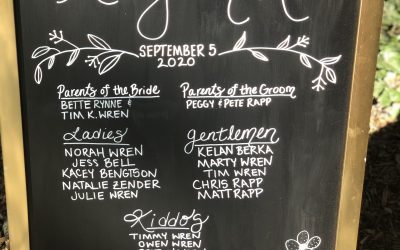 SEPTEMBER 5
2020
Parents of the Bride
BETTE RYNNE &
TIM K. WREN
Parents of the Groom
PEGGY & PETE RAPP
Ladies
NORAH WREN
JESS BELL
KACEY BENGTSON
NATALIE ZENDER
JULIE WREN
gentlemen
KELAN BERKA
MARTY WREN
TIM WREN
CHRIS RAPP
MATT RAPP
Kiddos
TIMMY WREN
OWEN WREN